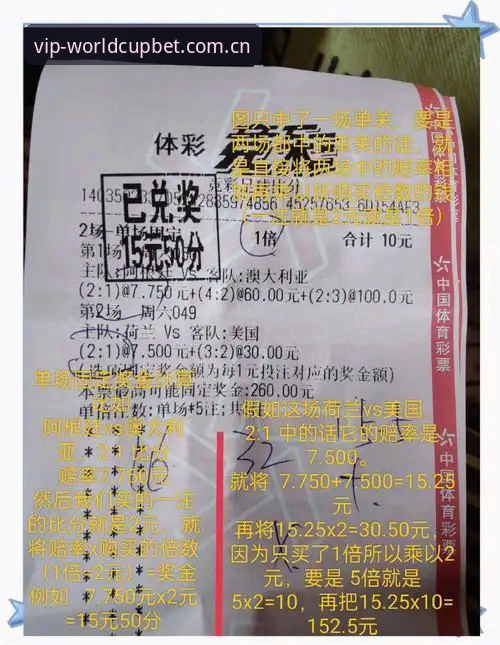 vip-worldcupbet.com.cn
图只中了一场单关，要是
两场都中的单关的话，就
是直接将两场中的赔率相
（一注就是2元就是1倍）
体彩
已兑奖
15元50分
2场-单场固定
1倍
合计 10元
第1场
主队:阿根廷 Vs 客队:澳大利亚
(2:1)@7.750元+(4:2)@60.00元+(2:3)@100.0元
第2场 周六049
主队:荷兰 Vs 客队:美国
(2:1)@7.500元+(3:2)@30.00元
(选项固定奖金额为每1元投注对应的奖金额)
本票最高可能固定奖金:260.00元
单倍注数:单场*5注;共
中国体育彩票
中国体育彩票
单场固定奖金计算
阿根廷vs澳大利
亚 2:1 比分
赔率7.750元
然后我们买的一注
的比分就是2元，就
将赔率x购买的倍数
（1倍=2元）=奖金
例如 7.750元x2元
=15元50分
假如这场荷兰vs美国
2:1 中的话它的赔率是
7.500。
就将 7.750+7.500=15.25
元
再将15.25x2=30.50元，
因为只买了1倍所以乘以2
元，要是 5倍就是
5x2=10，再把15.25x10=
152.5元